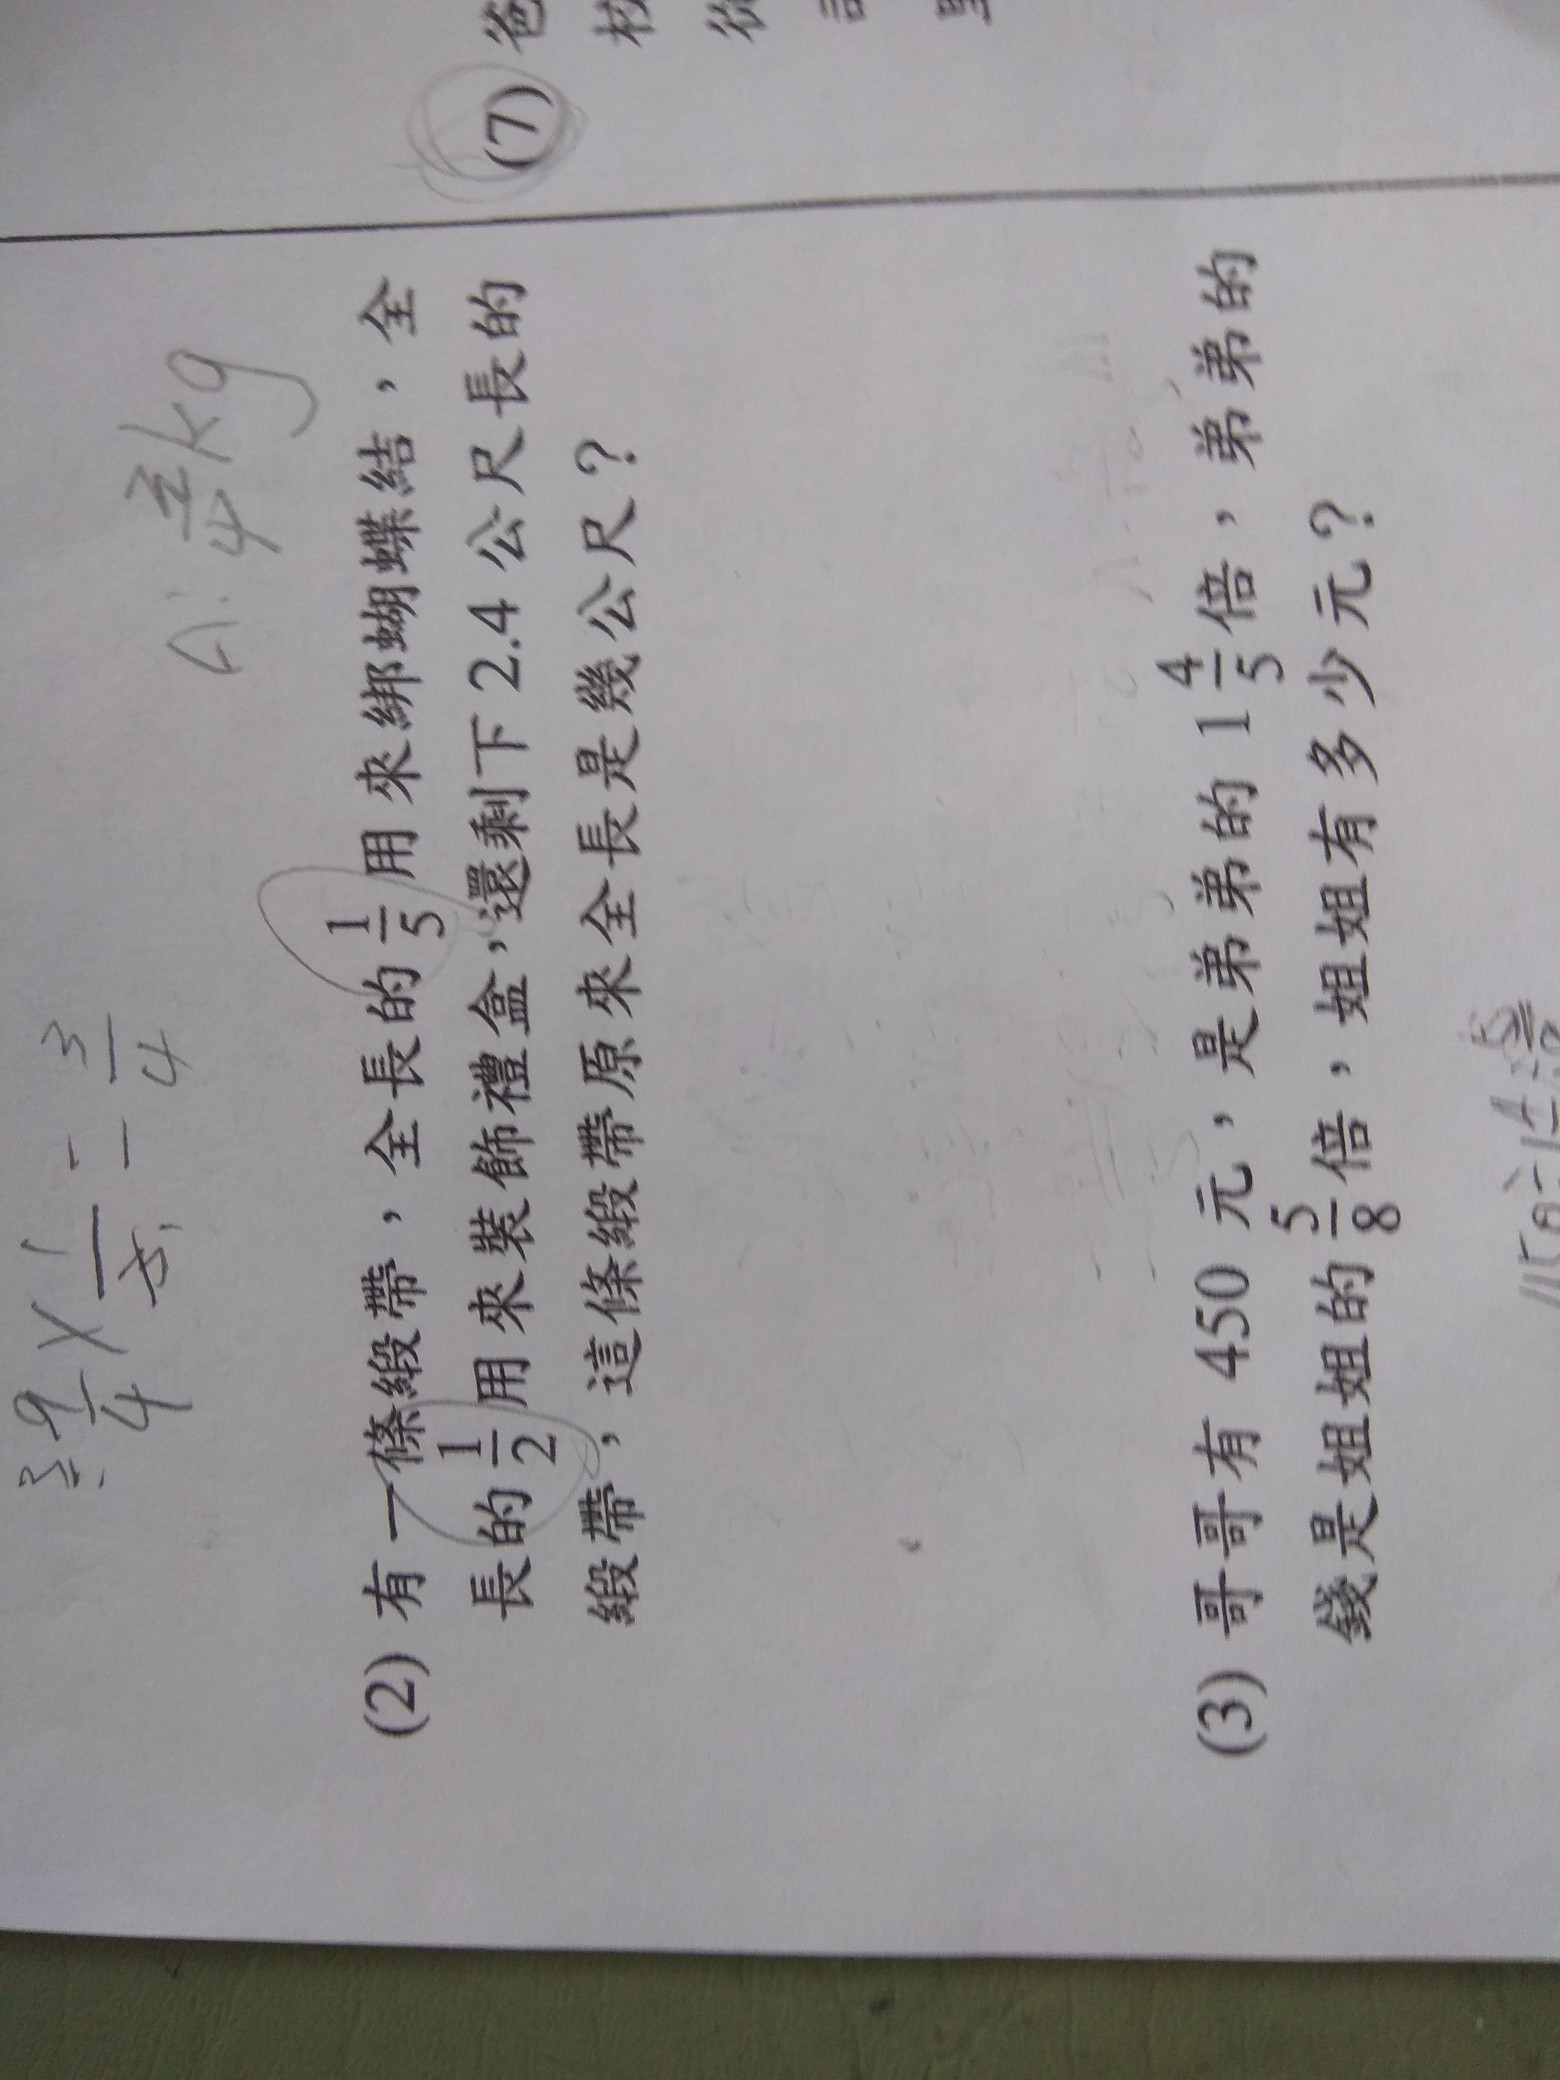 9/4 × 1/3 = 3/4
A: 3/4 kg
(2) 有一條緞帶，全長的 1/5 用來綁蝴蝶結，全
長的 1/2 用來裝飾禮盒，還剩下 2.4 公尺長的
緞帶，這條緞帶原來全長是幾公尺？
(3) 哥哥有 450 元，是弟弟的 1 4/5 倍，弟弟的
錢是姐姐的 5/8 倍，姐姐有多少元？
(7) 爸
校
從